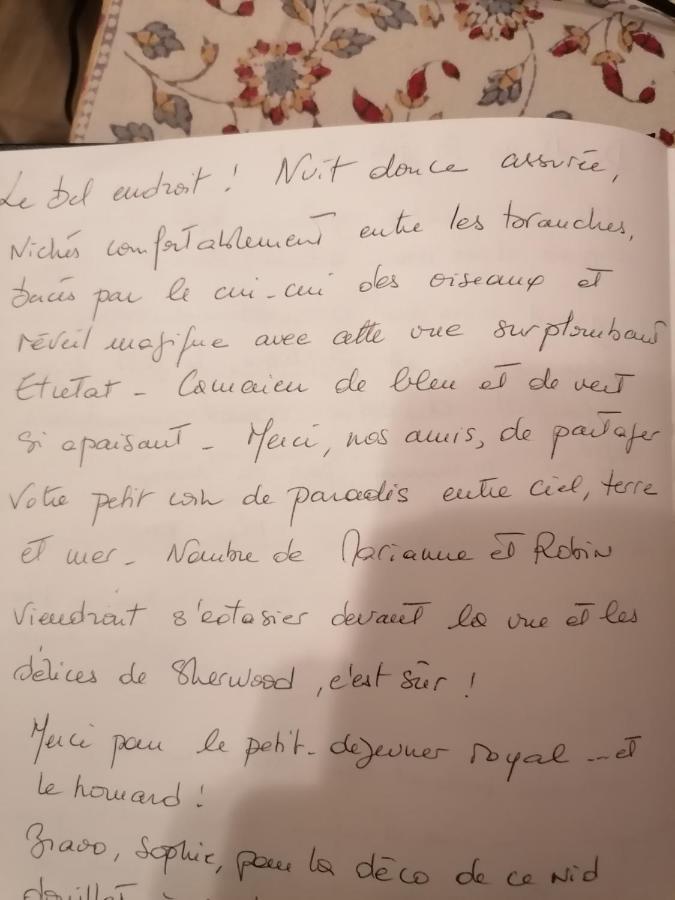 Le bel endroit ! Nuit douce assurée,
Nichés confortablement entre les branches,
bercés par le cui-cui des oiseaux et
réveil magifique avec cette vue surplombant
Etretat - Camaïeu de bleu et de vert
si apaisant - Merci, nos amis, de partager
votre petit coin de paradis entre ciel, terre
et mer - Nombre de Marianne et Robin
viendront s'extasier devant la vue et les
délices de Sherwood, c'est sûr !
Merci pour le petit-dejeuner royal ... et
le homard !
Bravo, Sophie, pour la déco de ce nid
douillet